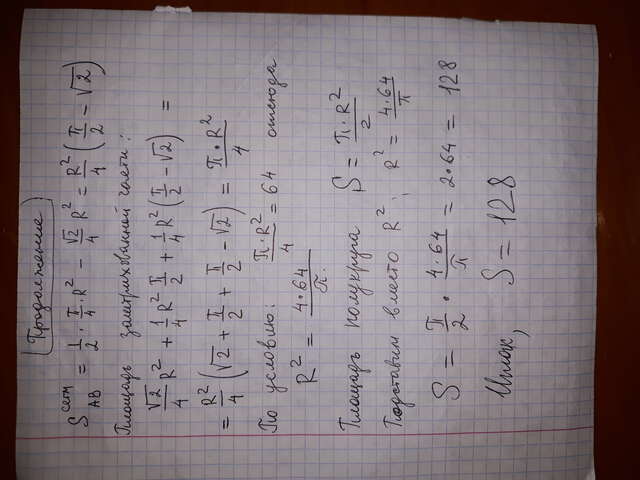 Продолжение
S сегм AB = 1/2 · π/4 · R² − √2/4 R² = R²/4 (π/2 − √2)
Площадь заштрихованной части:
√2/4 R² + 1/4 R² π/2 + 1/4 R² (π/2 − √2) =
= R²/4 (√2 + π/2 + π/2 − √2) = π·R²/4
По условию: π·R²/4 = 64 отсюда
R² = 4·64/π.
Площадь полукруга S = π·R²/2
Подставим вместо R²; R² = 4·64/π
S = π/2 · 4·64/π = 2·64 = 128
Итак, S = 128